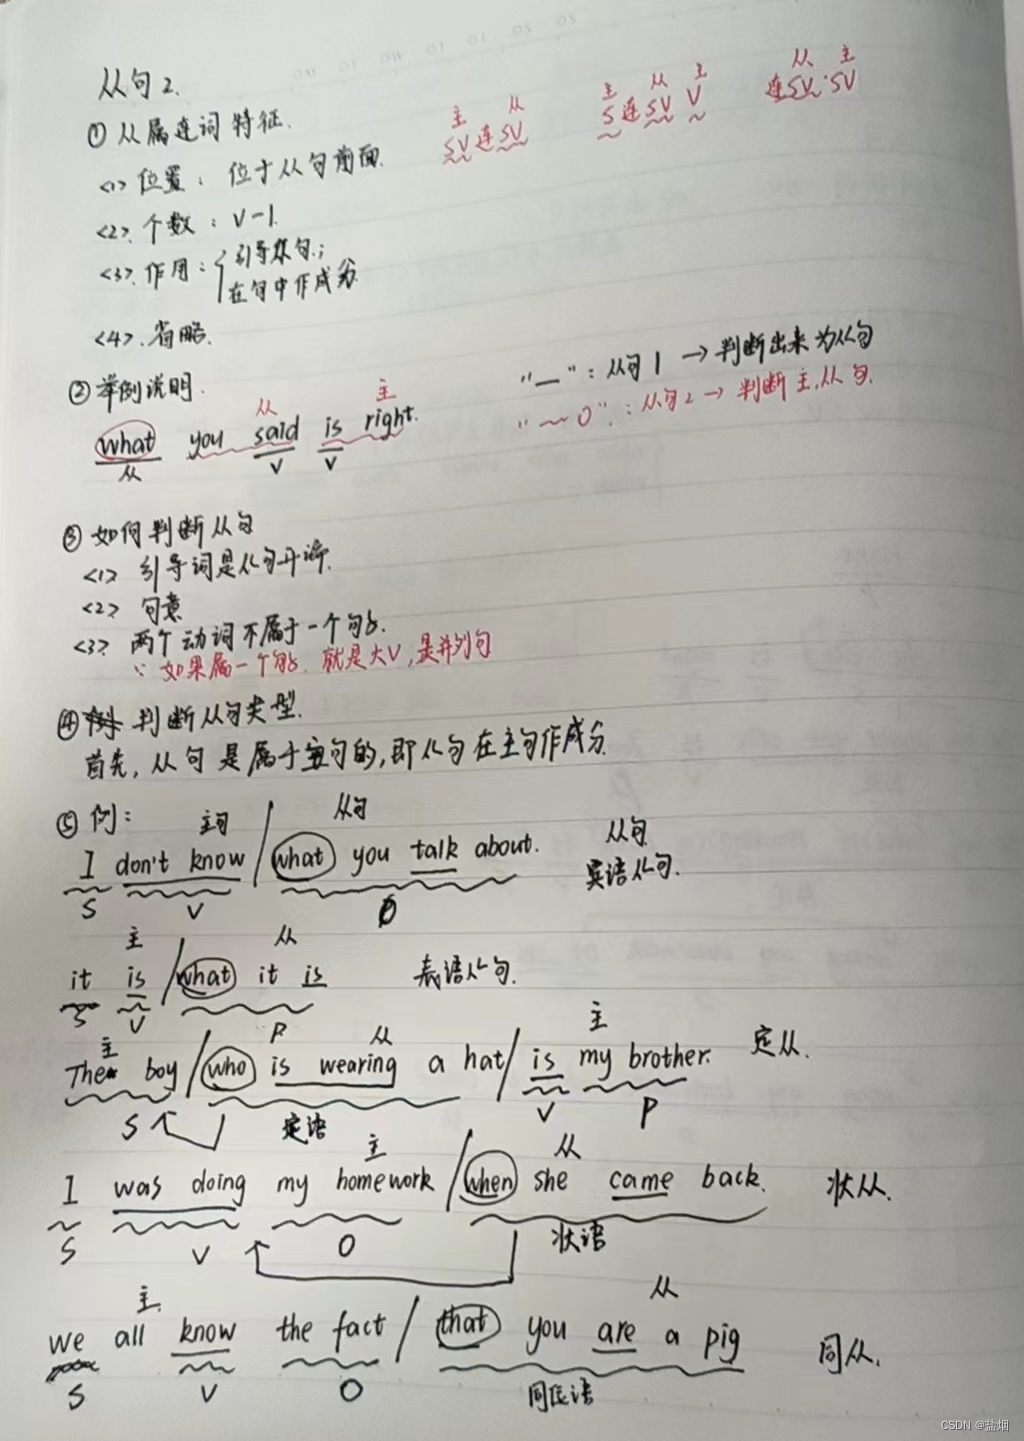 从句2.
主 从 主 从 主 从 主
SV连SV S连SV V 连SV,SV
①从属连词特征.
<1>位置：位于从句前面.
<2>.个数：V-1.
<3>.作用：引导从句；
在句中作成分
<4>.省略.
②举例说明.
"—"：从句1 → 判断出来为从句
"~O"：从句2 → 判断主.从句.
从 主
what you said is right.
从 V V
③如何判断从句
<1> 引导词是从句开端.
<2> 句意
<3> 两个动词不属于一个句子.
∵如果属一个句子.就是大V,是并列句
④ 判断从句类型.
首先,从句是属于主句的,即从句在主句作成分.
⑤例：
主句 从句
I don't know / what you talk about. 从句
宾语从句.
S V O
主 从
it is / what it is 表语从句.
S V P
主 从 主
The boy / who is wearing a hat / is my brother. 定从.
S 定语 V P
主 从
I was doing my homework / when she came back. 状从.
S V O 状语
主. 从
we all know the fact / that you are a pig 同从.
S V O 同位语
CSDN @盐烟